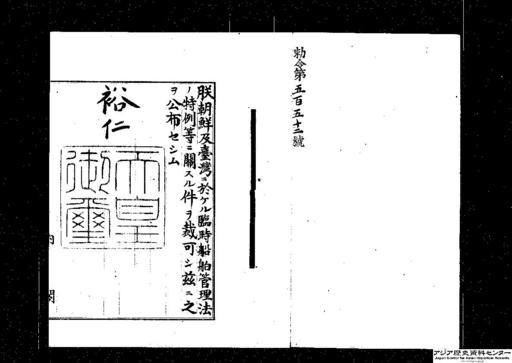 勅令第五百五十二號
朕朝鮮及臺灣ニ於ケル臨時船舶管理法
ノ特例等ニ關スル件ヲ裁可シ茲ニ之
ヲ公布セシム
裕仁
天皇
御璽
内閣
アジア歴史資料センター
Japan Center for Asian Historical Records